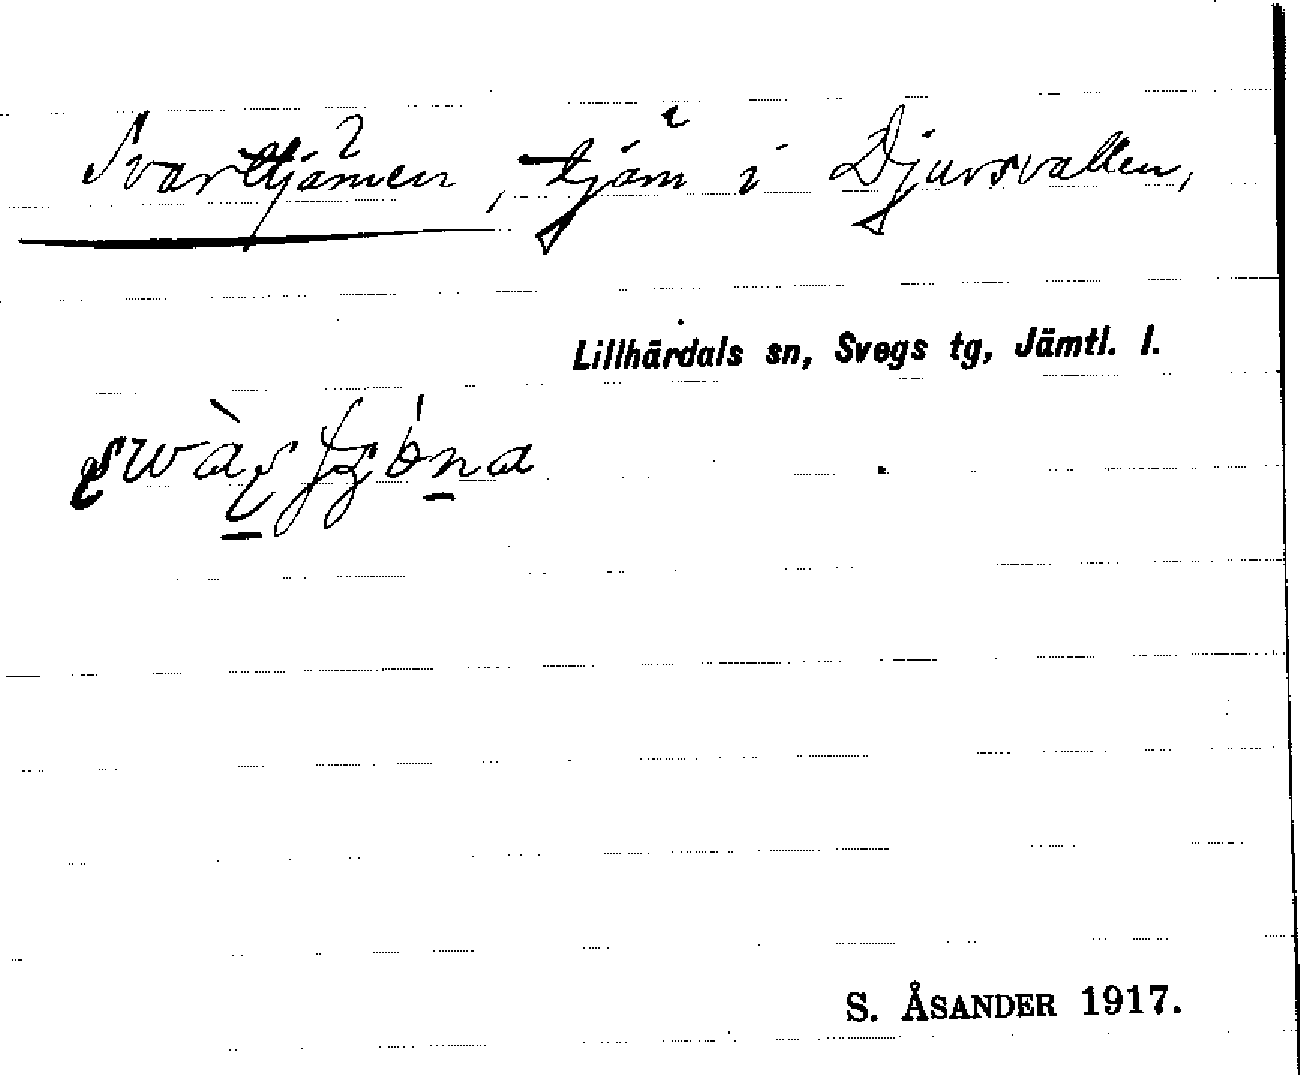 Svarttjärnen, tjärn i Djursvallen,
Lillhärdals sn, Svegs tg, Jämtl. l.
S. ÅSANDER 1917.